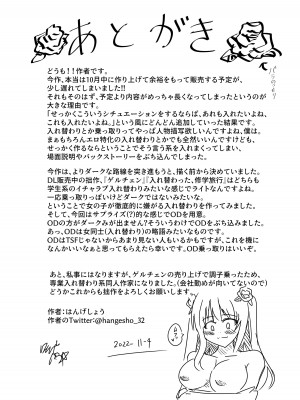 あとがき
どうも！！作者です。
今作、本当は10月中に作り上げて余裕をもって販売する予定が、
少し遅れてしまいました!!
それもそのはず、予定より内容がめっちゃ長くなってしまったというのが
大きな理由です。
「せっかくこういうシチュエーションをするならば、あれも入れたいよね、
これも入れたいよね。」という風にどんどん追加していった結果です。
入れ替わりとか乗っ取りってやっぱ人物描写欲しいんですよね、僕は。
まぁもちろんエロ特化の入れ替わりとかでも全然いいですけども、
せっかく作るならということでそう言う系を入れまくってしまい、
場面説明やバックストーリーをぶち込んでしまった。
今作は、よりダークな路線を突き進もうと、描く前から決めていました。
DL販売中の拙作、『ゲルチェン』『入れ替わった、修学旅行』はどちらも
学生系のイチャラブ入れ替わりみたいな感じでライトなんですよね。
一応乗っ取りっぽいけどダークではないみたいな。
ということで女の子が徹底的に嫌がる入れ替わりを作ってみました。
そして、今回はサプライズ(?)的な感じでODを用意。
ODの方がダークみが出ません?そういうわけでODをぶち込みました。
あっ、ODは女同士(入れ替わり)の略語みたいなものです。
ODはTSFじゃないからあまり見ない人もいるかもですが、これを機に
なんかいいなぁと思ってもらえたら幸いです。OD乗っ取りはいいぞ。
あと、私事にはなりますが、ゲルチェンの売り上げで調子乗ったため、
専業入れ替わり系同人作家になりました。(会社勤めが向いてないので)
どうかこれからも拙作をよろしくお願いします。
作者：はんげしょう
作者のTwitter:@hangesho_32
2022-11-9